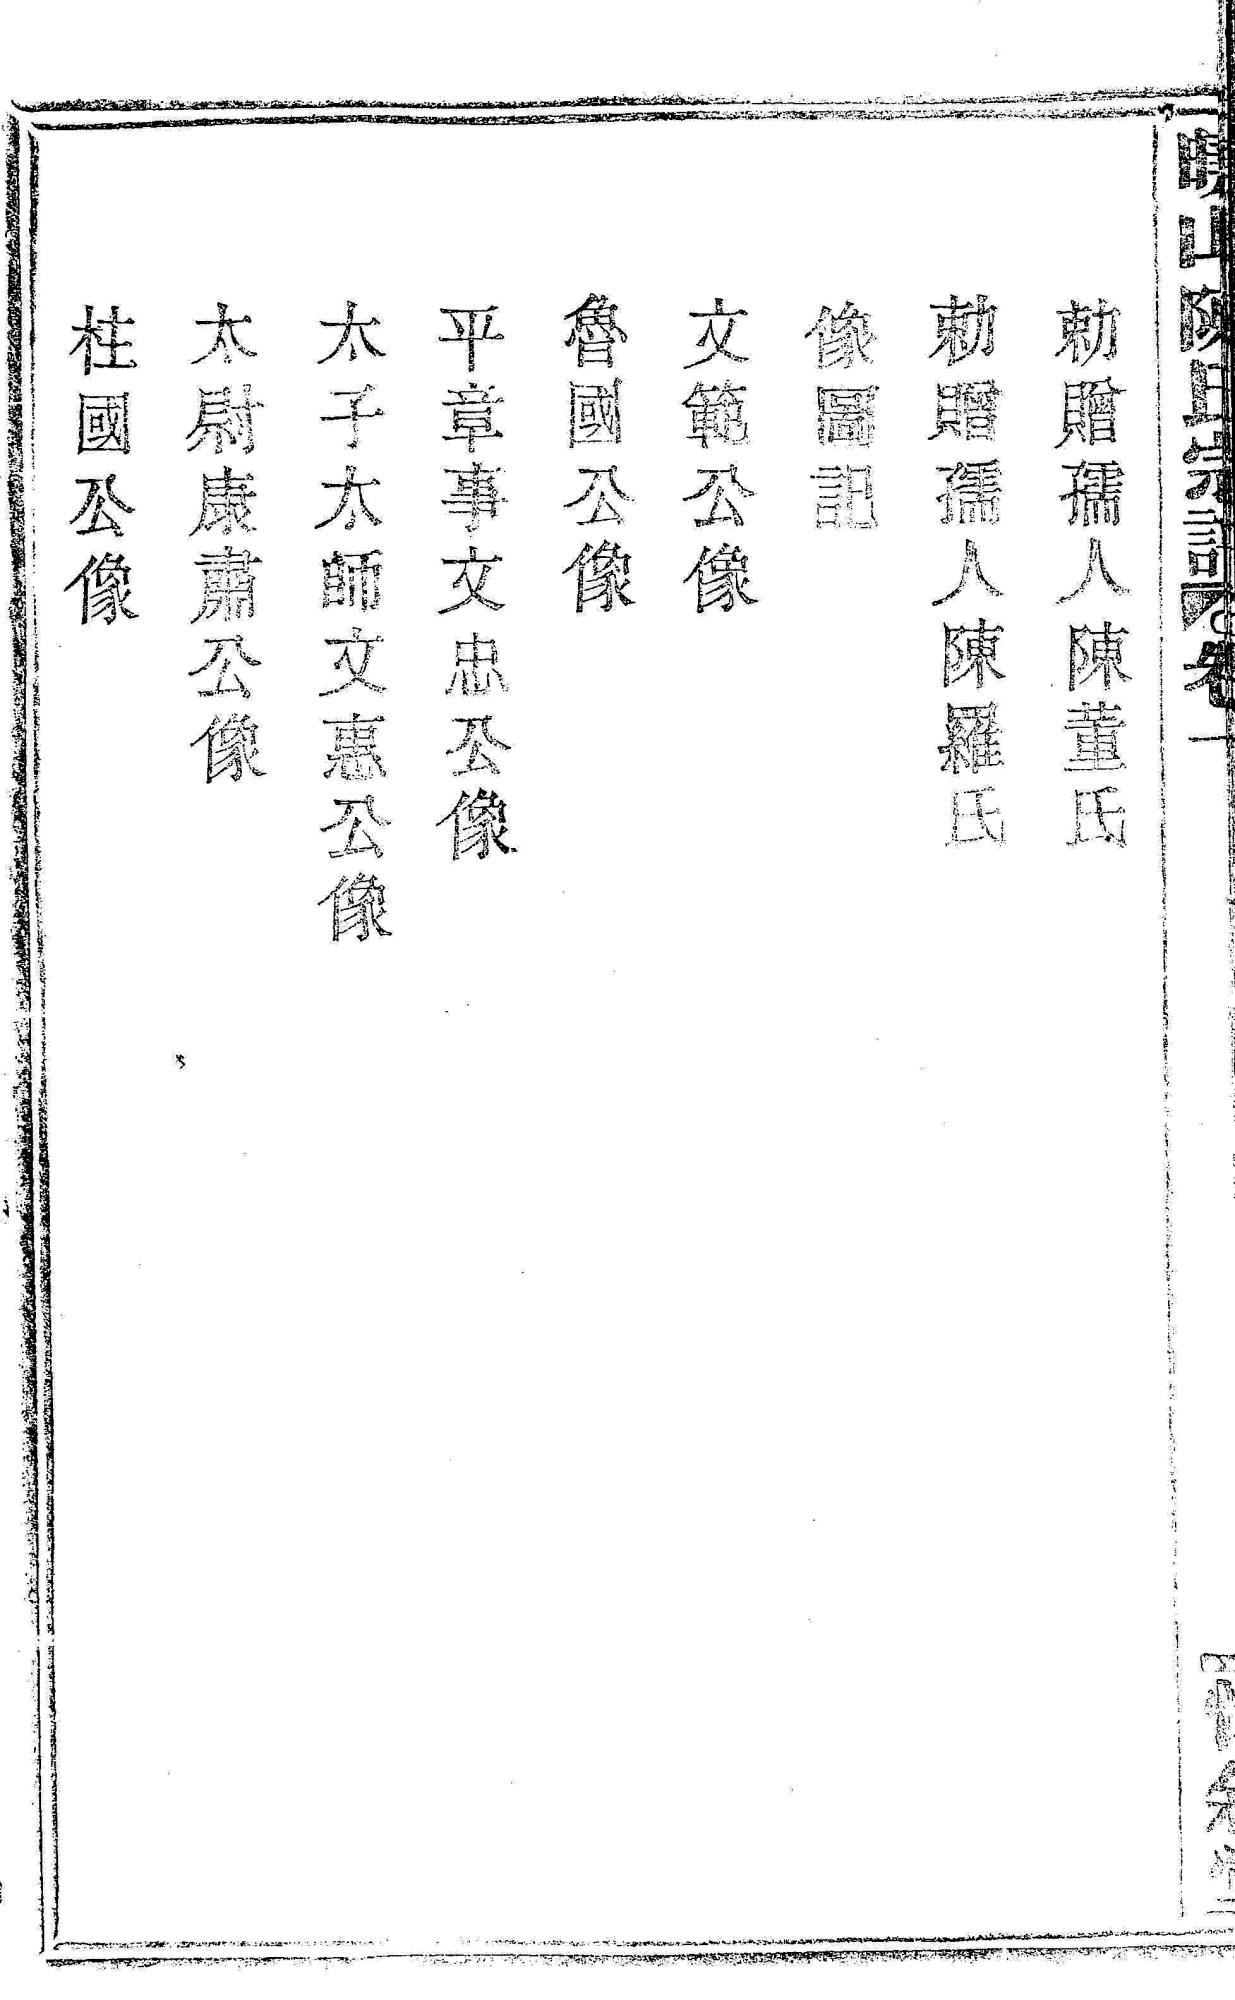 山陳氏宗譜 卷一
勅贈孺人陳董氏
勅贈孺人陳羅氏
像圖記
文範公像
魯國公像
平章事文忠公像
太子太師文惠公像
太尉康肅公像
柱國公像